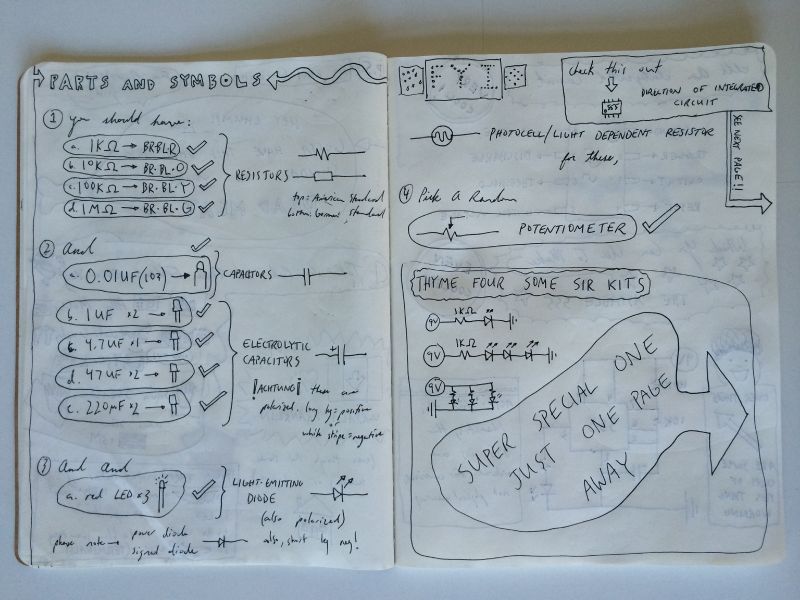 PARTS AND SYMBOLS
① you should have:
a. 1KΩ → BR·BL·R
b. 10KΩ → BR·BL·O
c. 100KΩ → BR·BL·Y
d. 1MΩ → BR·BL·G
RESISTORS
top = American Standard
bottom = German Standard
② And
a. 0.01UF (103) →
CAPACITORS
b. 1UF x2 →
4.7UF x1 →
d. 47UF x2 →
220µF x2 →
ELECTROLYTIC
CAPACITORS
¡ACHTUNG! these are
polarized. long leg = positive
white stripe = negative
③ And And
a. red LED x3
LIGHT-EMITTING
DIODE
(also polarized)
please note → power diode
signal diode
also, short leg neg!
FYI
check this out
555
DIRECTION OF INTEGRATED
CIRCUIT
SEE NEXT PAGE!!
PHOTOCELL/LIGHT DEPENDENT RESISTOR
for these,
④ Pick A Random
POTENTIOMETER
THYME FOUR SOME SIR KITS
9V 1KΩ
9V 1KΩ
9V
SUPER SPECIAL ONE
JUST ONE PAGE
AWAY